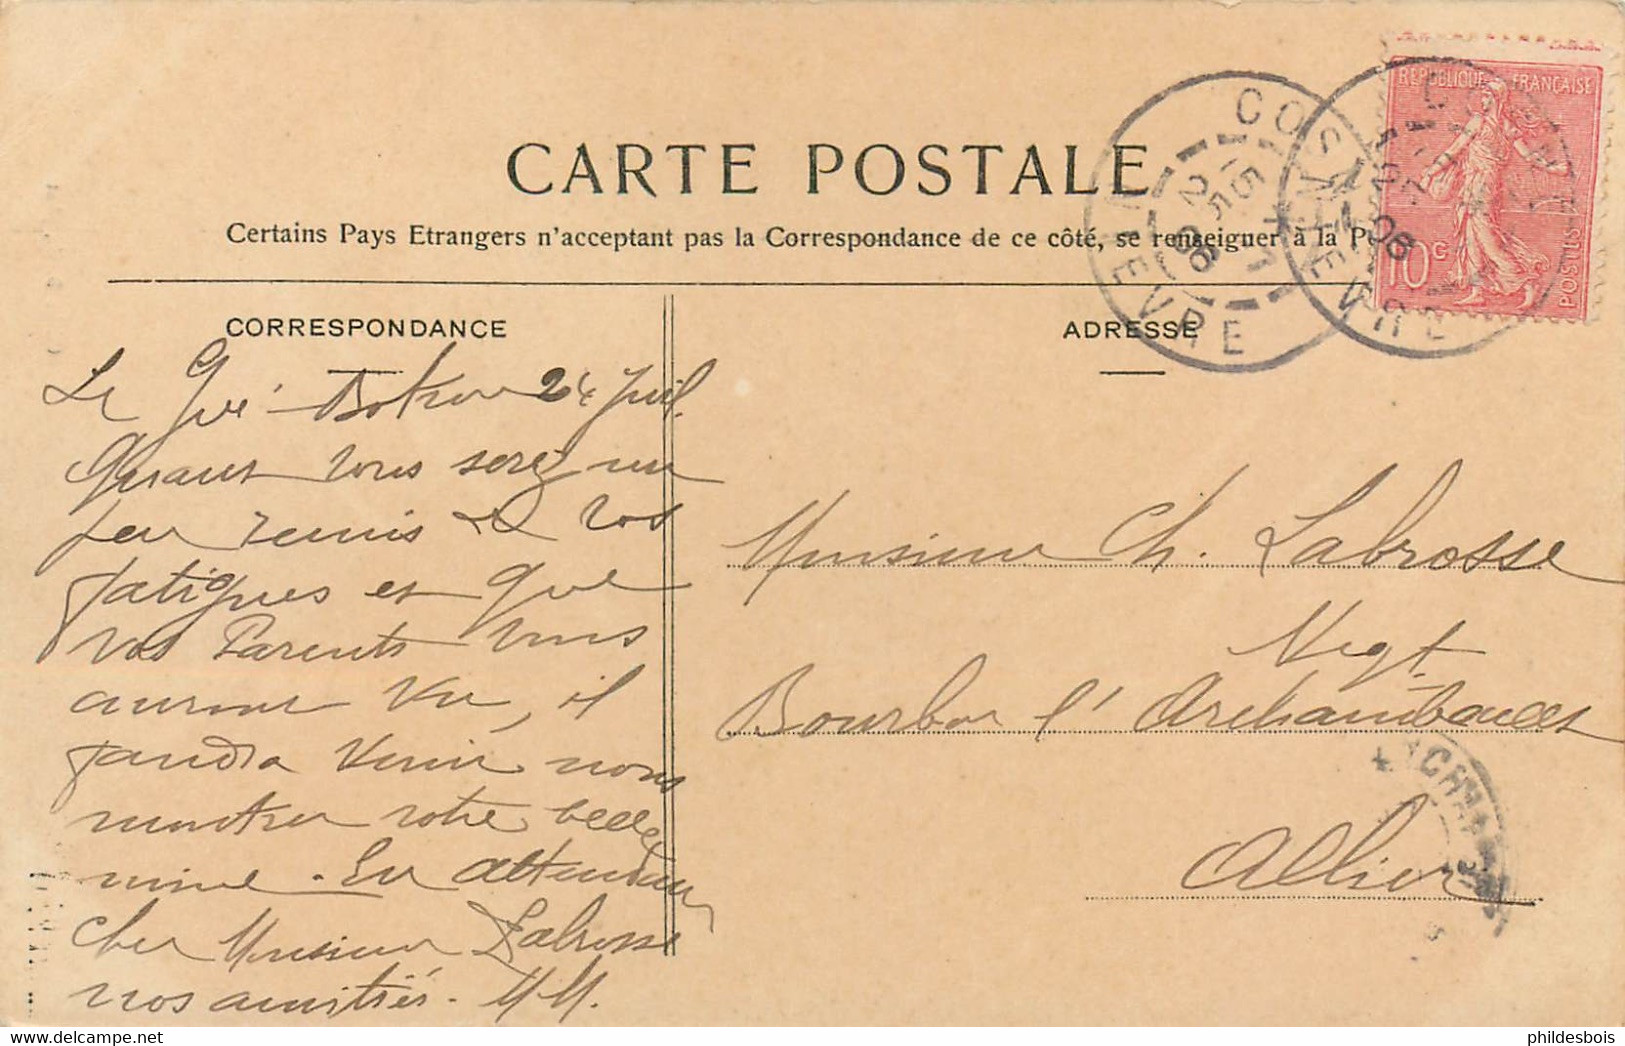 CARTE POSTALE
Certains Pays Etrangers n'acceptant pas la Correspondance de ce côté, se renseigner à la P
CORRESPONDANCE
ADRESSE
REPUBLIQUE FRANÇAISE
10c
POSTES
COSNE
NIEVRE
15 55
25 -7
06
COSNE
NIEVRE
25 -7
06
Le Gué 24 Juil.
Quant vous serez un
peu remis de vos
fatigues et que
vos Parents vous
auront vu, il
faudra venir nous
montrer votre belle
mine. En attendant
cher Monsieur Labrosse
nos amitiés. MM.
Monsieur Ch. Labrosse
Negt
Bourbon l'Archambault
Allier
ARCHAM
www.delcampe.net
phildesbois